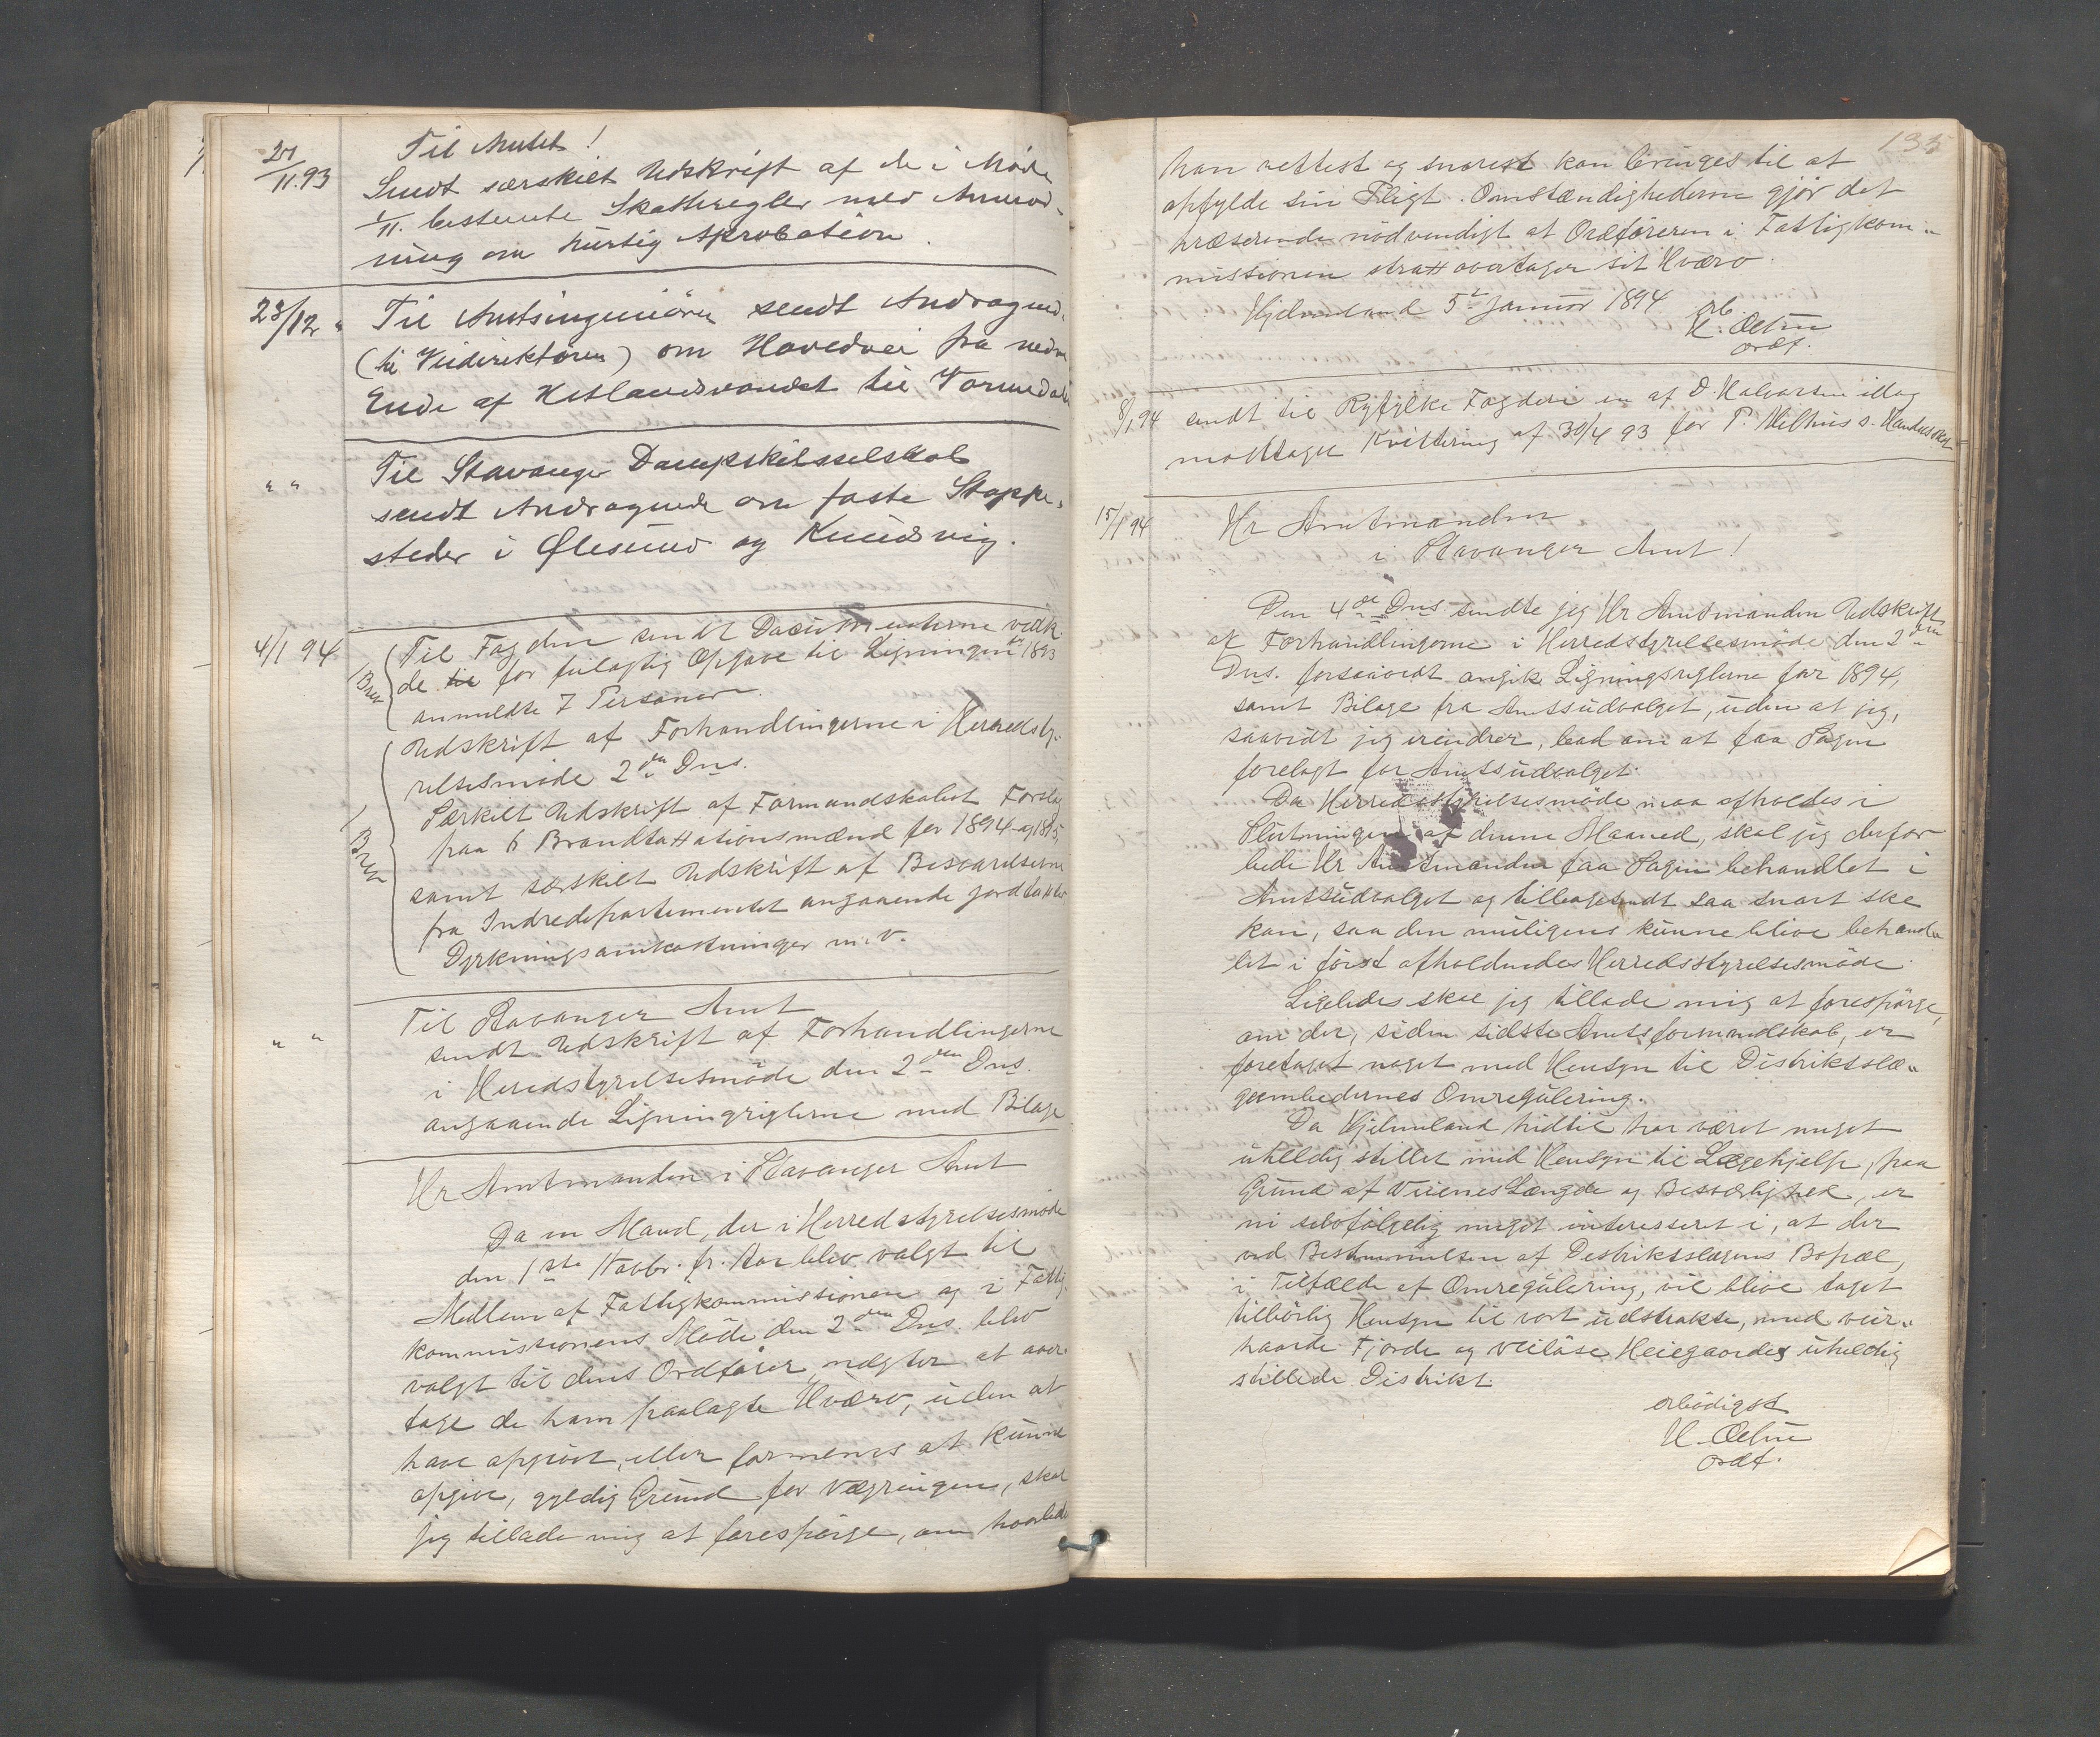 Til Amtet!
27/11.93 Sendt særskilt Udskrift af de i Møde
1/11. bestemte Skatteregler med Anmod-
ning om hurtig Aprobation.
23/12 " Til Amtsingeniören sendt Andragende
(til Veidirektøren) om Hovedvei fra nedre
Ende af Hetlandsvandet til Tormedal
" " Til Stavanger Dampskibsselskab
sendt Andragende om faste Stoppe-
steder i Ølesund og Knudsvig.
4/1 94 Til Fogden sendt Documenterne vedk.
1 Brev de for feilagtig Opgave til Ligningen for 1893
anmeldte 7 Personer.
Udskrift af Forhandlingerne i Herredsty-
relsesmöde 2den Dns.
1 Brev Særkilt Udskrift af Formandskabet Forslag
paa 6 Brandtaxationsmænd for 1894 og 1895,
samt særskilt Udskrift af Besvarelserne
fra Indredepartementet angaaende jordtaxter
Dyrkningsomkostninger m.v.
" " Til Stavanger Amt
sendt Udskrift af Forhandlingerne
i Heredstyrelsesmöde den 2den Dns.
angaaende Ligningsreglerne med Bilage
Hr Amtmanden i Stavanger Amt
Da en Mand, der i Herredstyrelsesmöde
den 1ste Novbr. fr. Aar blev valgt til
Medlem af Fattigkommissionen og i Fattig-
kommissionens Møde den 2den Dns. blev
valgt til dens Ordförer, nægter at over-
tage de ham paalagte Hværv, uden at
have opgivet, eller formenes at kunne
opgive, gyldig Grund for Vægringen, skal
jeg tillade mig at forespörge, om hvorledes
135
han rettest og snarest kan bringes til at
opfylde sin Pligt. Omstændighederne gjör det
præserende nödvendigt at Ordföreren i Fattigkom-
missionen strax overtager sit Hværv.
Hjelmeland 5te Januar 1894 erb.
H. Oetne
Ordf.
8/1 94 sendt til Ryfylke Fogderi en af O. Halvorsen idag
modtagen Kvittering af 30/4 93 for P. Velhus s.
15/1 94 Hr Amtmanden
i Stavanger Amt!
Den 4de Dns sendte jeg Hr Amtmanden Udskrift
af Forhandlingerne i Herredstyrelsesmöde den 2den
Dns. forsaavidt angik Ligningsreglerne for 1894,
samt Bilage fra Amtsudvalget, uden at jeg,
saavidt jeg erindrer, bad om at faa Sagen
forelagt for Amtsudvalget.
Da Herredsstyrelsesmöde maa afholdes i
Slutningen af denne Maaned, skal jeg derfor
bede Hr Amtmanden faa Sagen behandlet i
Amtsudvalget og tilbagesendt saa snart ske
kan, saa den muligens kunne blive behand-
let i först afholdendes Herredsstyrelsesmöde.
Ligeledes skal jeg tillade mig at forespörge,
om der, siden sidste Amtsformandskab, er
foretaget noget med Hensyn til Distriktslæ-
geembedernes Omregulering.
Da Hjelmeland hidtil har været meget
uheldig stillet med Hensyn til Lægehjelp, paa
Grund af Veienes Længde og Besværlighed, er
vi selvfölgelig meget interesseret i, at der
ved Bestemmelsen af Distriktslægens Bopæl,
i Tilfælde af Omregulering, vil blive taget
tilbörlig Hensyn til vort udstrakte, med veir-
haarde Fjorde og veilöse Heiegaarde, uheldig
stillede Distrikt.
erbödigst
H. Oetne
Ordf.